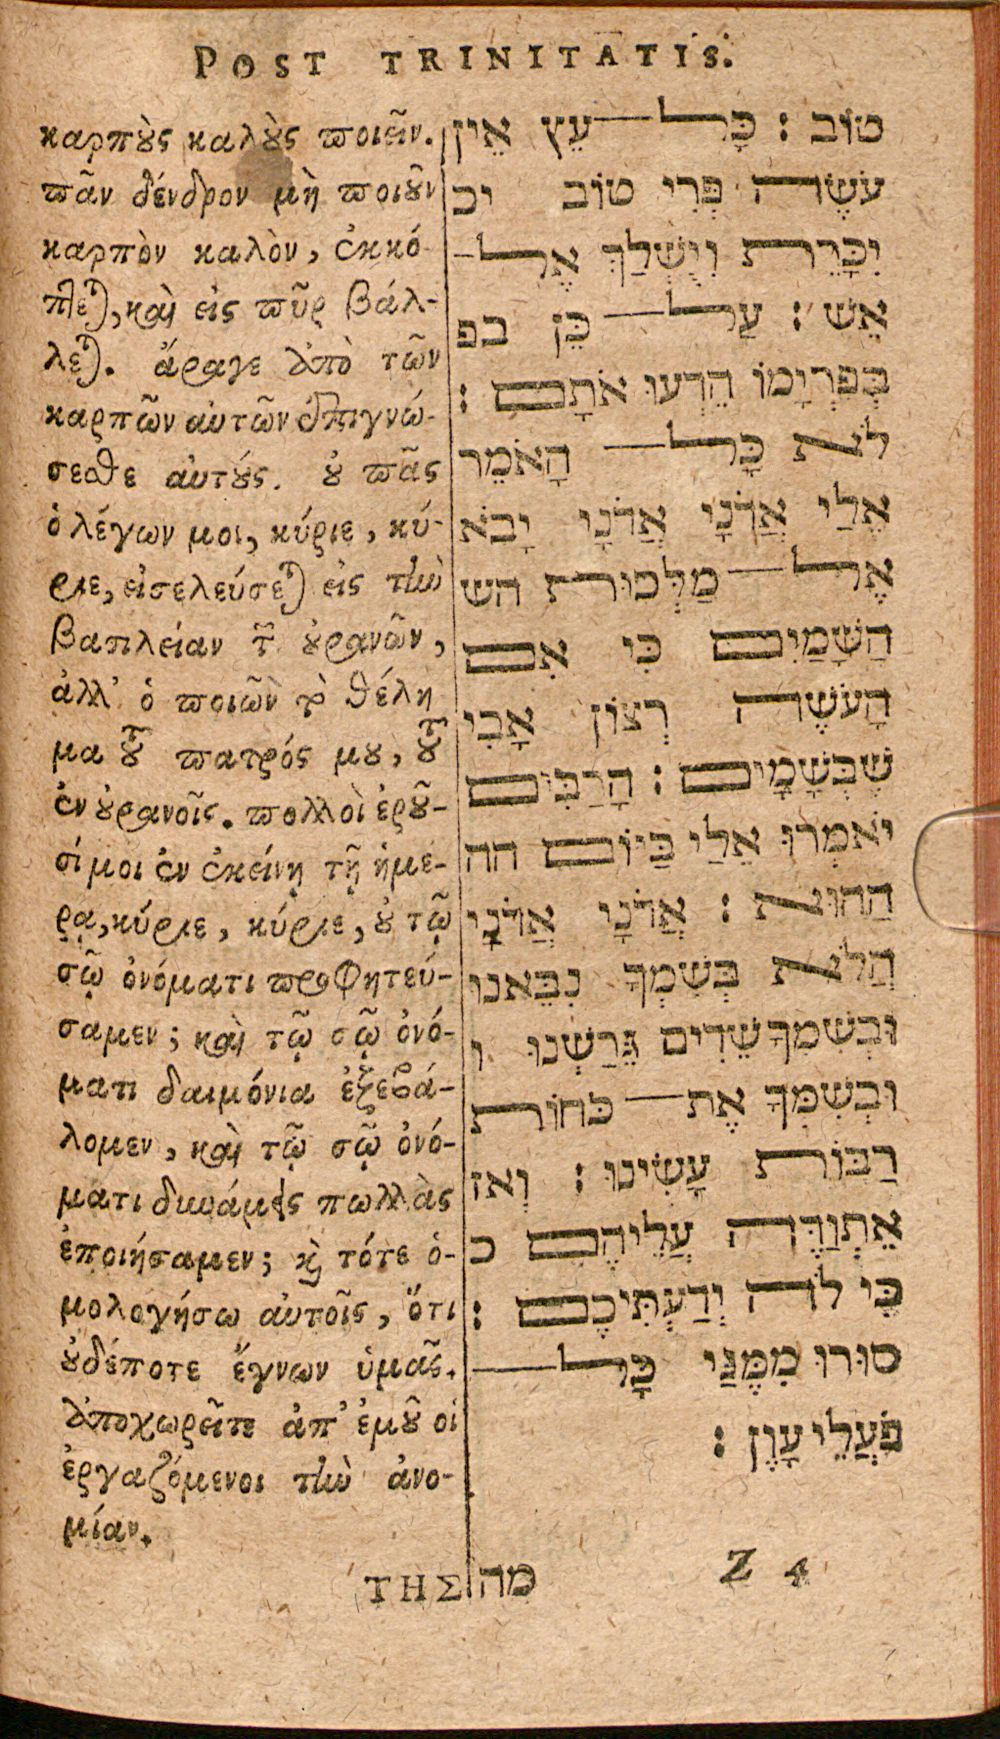 POST TRINITATIS.
καρπȣ̀ς καλȣ̀ς ϖοιεῖν.
ϖᾶν δένδρον μὴ ϖοιȣ̃ν
καρπὸν καλὸν, ἐκκό-
πτε), καὶ εἰς ϖῦρ βάλ-
λε). ἄραγε ἀπὸ τῶν
καρπῶν αὐτῶν ἐπιγνώ-
σεσθε αὐτȣ́ς. ȣ̓ ϖᾶς
ὁ λέγων μοι, κύριε, κύ-
ριε, εἰσελεύσε) εἰς τὴν
βασιλείαν τ͂ ȣ̓ρανῶν,
ἀλλ' ὁ ποιῶν τὸ θέλη
μα τȣ͂ ϖατρός μȣ, τȣ͂
ἐν ȣ̓ρανοῖς. ϖολλοὶ ἐρȣ͂-
σί μοι ἐν ἐκείνῃ τῇ ἡμε-
ρᾳ, κύριε, κύριε, ȣ̓ τῷ
σῷ ὀνόματι ϖροφητεύ-
σαμεν; καὶ τῷ σῷ ὀνό-
ματι δαιμόνια ἐξεβά-
λομεν, καὶ τῷ σῷ ὀνό-
ματι δυνάμεις πωλλὰς
ἐποιήσαμεν; ϗ̀ τότε ὁ-
μολογήσω αὐτοῖς, ὅτι
ȣ̓δέποτε ἔγνων ὑμᾶς.
ἀποχωρεῖτε ἀπ' ἐμȣ͂ οἱ
ἐργαζόμενοι τὴν ἀνο-
μίαν.
ΤΗΣ
טוֹב : כָּל—עֵץ אֵין
עֹשֶׂה פְּרִי טוֹב יכ
יִכָּרֵת וְיֻשְׁלַךְ אֶל—
אֵשׁ : עַל—כֵּן בפ
בְּפִרְיָמוֹ הֵדְעוּ אֹתָם :
לֹא כָּל—הָאֹמֵר
אֶלַי אֲדֹנָי אֲדֹנָי יָבֹא
אֶל—מַלְכוּת הש
הַשָּׁמַיִם כִּי אִם
הָעֹשֶׂה רְצוֹן אָבִי
שֶׁבְּשָׁמָיִם : הָרַבִּים
יֹאמְרוּ אֵלַי בַּיּוֹם הה
הַהוּא : אֲדֹנָי אֲדֹנָי
הֲלֹא בְּשִׁמְךָ נִבֵּאנוּ
וּבְשִׁמְךָ שֵׁדִים גֵּרַשְׁנוּ ו
וּבְשִׁמְּךָ אֶת—כֹּחוֹת
רַבּוֹת עָשִׂינוּ : וְאז
אֶתְוַדֶּה עֲלֵיהֶם כ
כִּי לֹה יְדַעְתִּיכֶם :
סוּרוּ מִמֶּנִּי כָּל—
פֹּעֲלֵי עָוֶן :
מה
Z 4